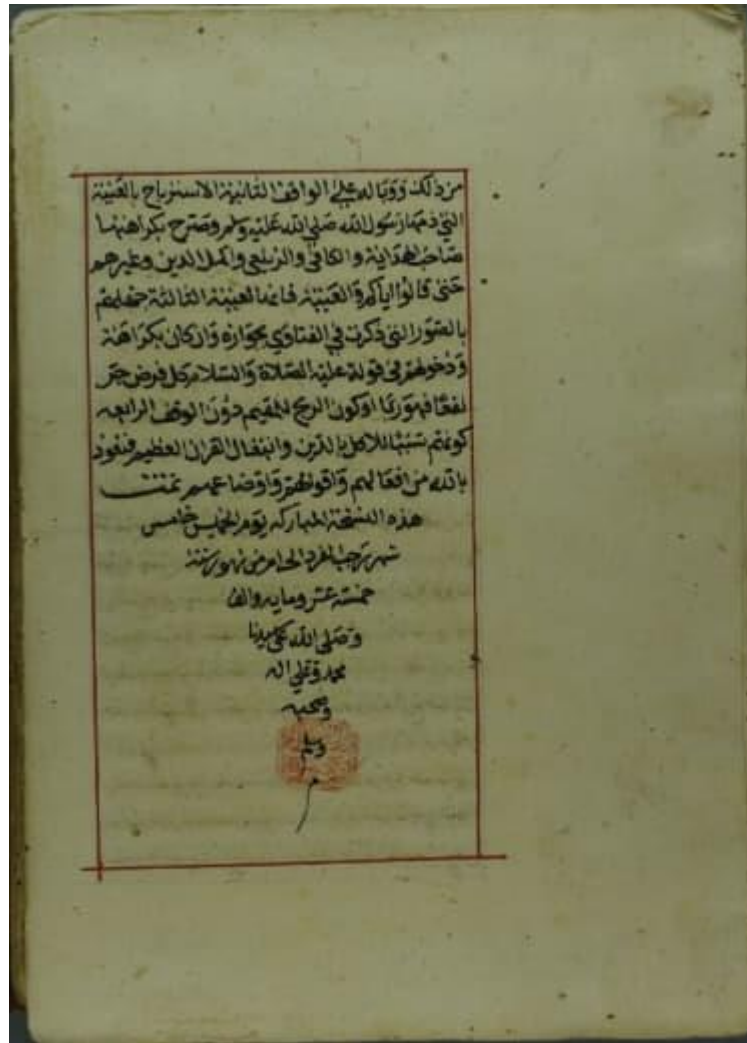 من ذلك ووباله على الواقف الثانية الاسترباح بالعينة
التي ذمها رسول الله صلى الله عليه وسلم وصرح بكراهتها
صاحب الهداية والكافي والزيلعي واكمل الدين وغيرهم
حتى قالوا اياكم والعينة فانها لعينة الثالثة جهلهم
بالصور التي ذكرت في الفتاوي بجوازه وان كان بكراهة
ودخولهم في قوله عليه الصلاة والسلام كل قرض جر
نفعا فهو ربا او كون الربح للمقيم دون الوقف الرابعة
كونهم سببا للاكل بالدين وابتذال القران العظيم فنعوذ
بالله من افعالهم واقوالهم واوضاعهم تمت
هذه النسخة المباركة يوم الخميس خامس
شهر رجب الفرد الحرام من شهور سنة
خمسة عشر وماية والف
وصلى الله على سيدنا
محمد وعلى اله
وصحبه
وسلم
م